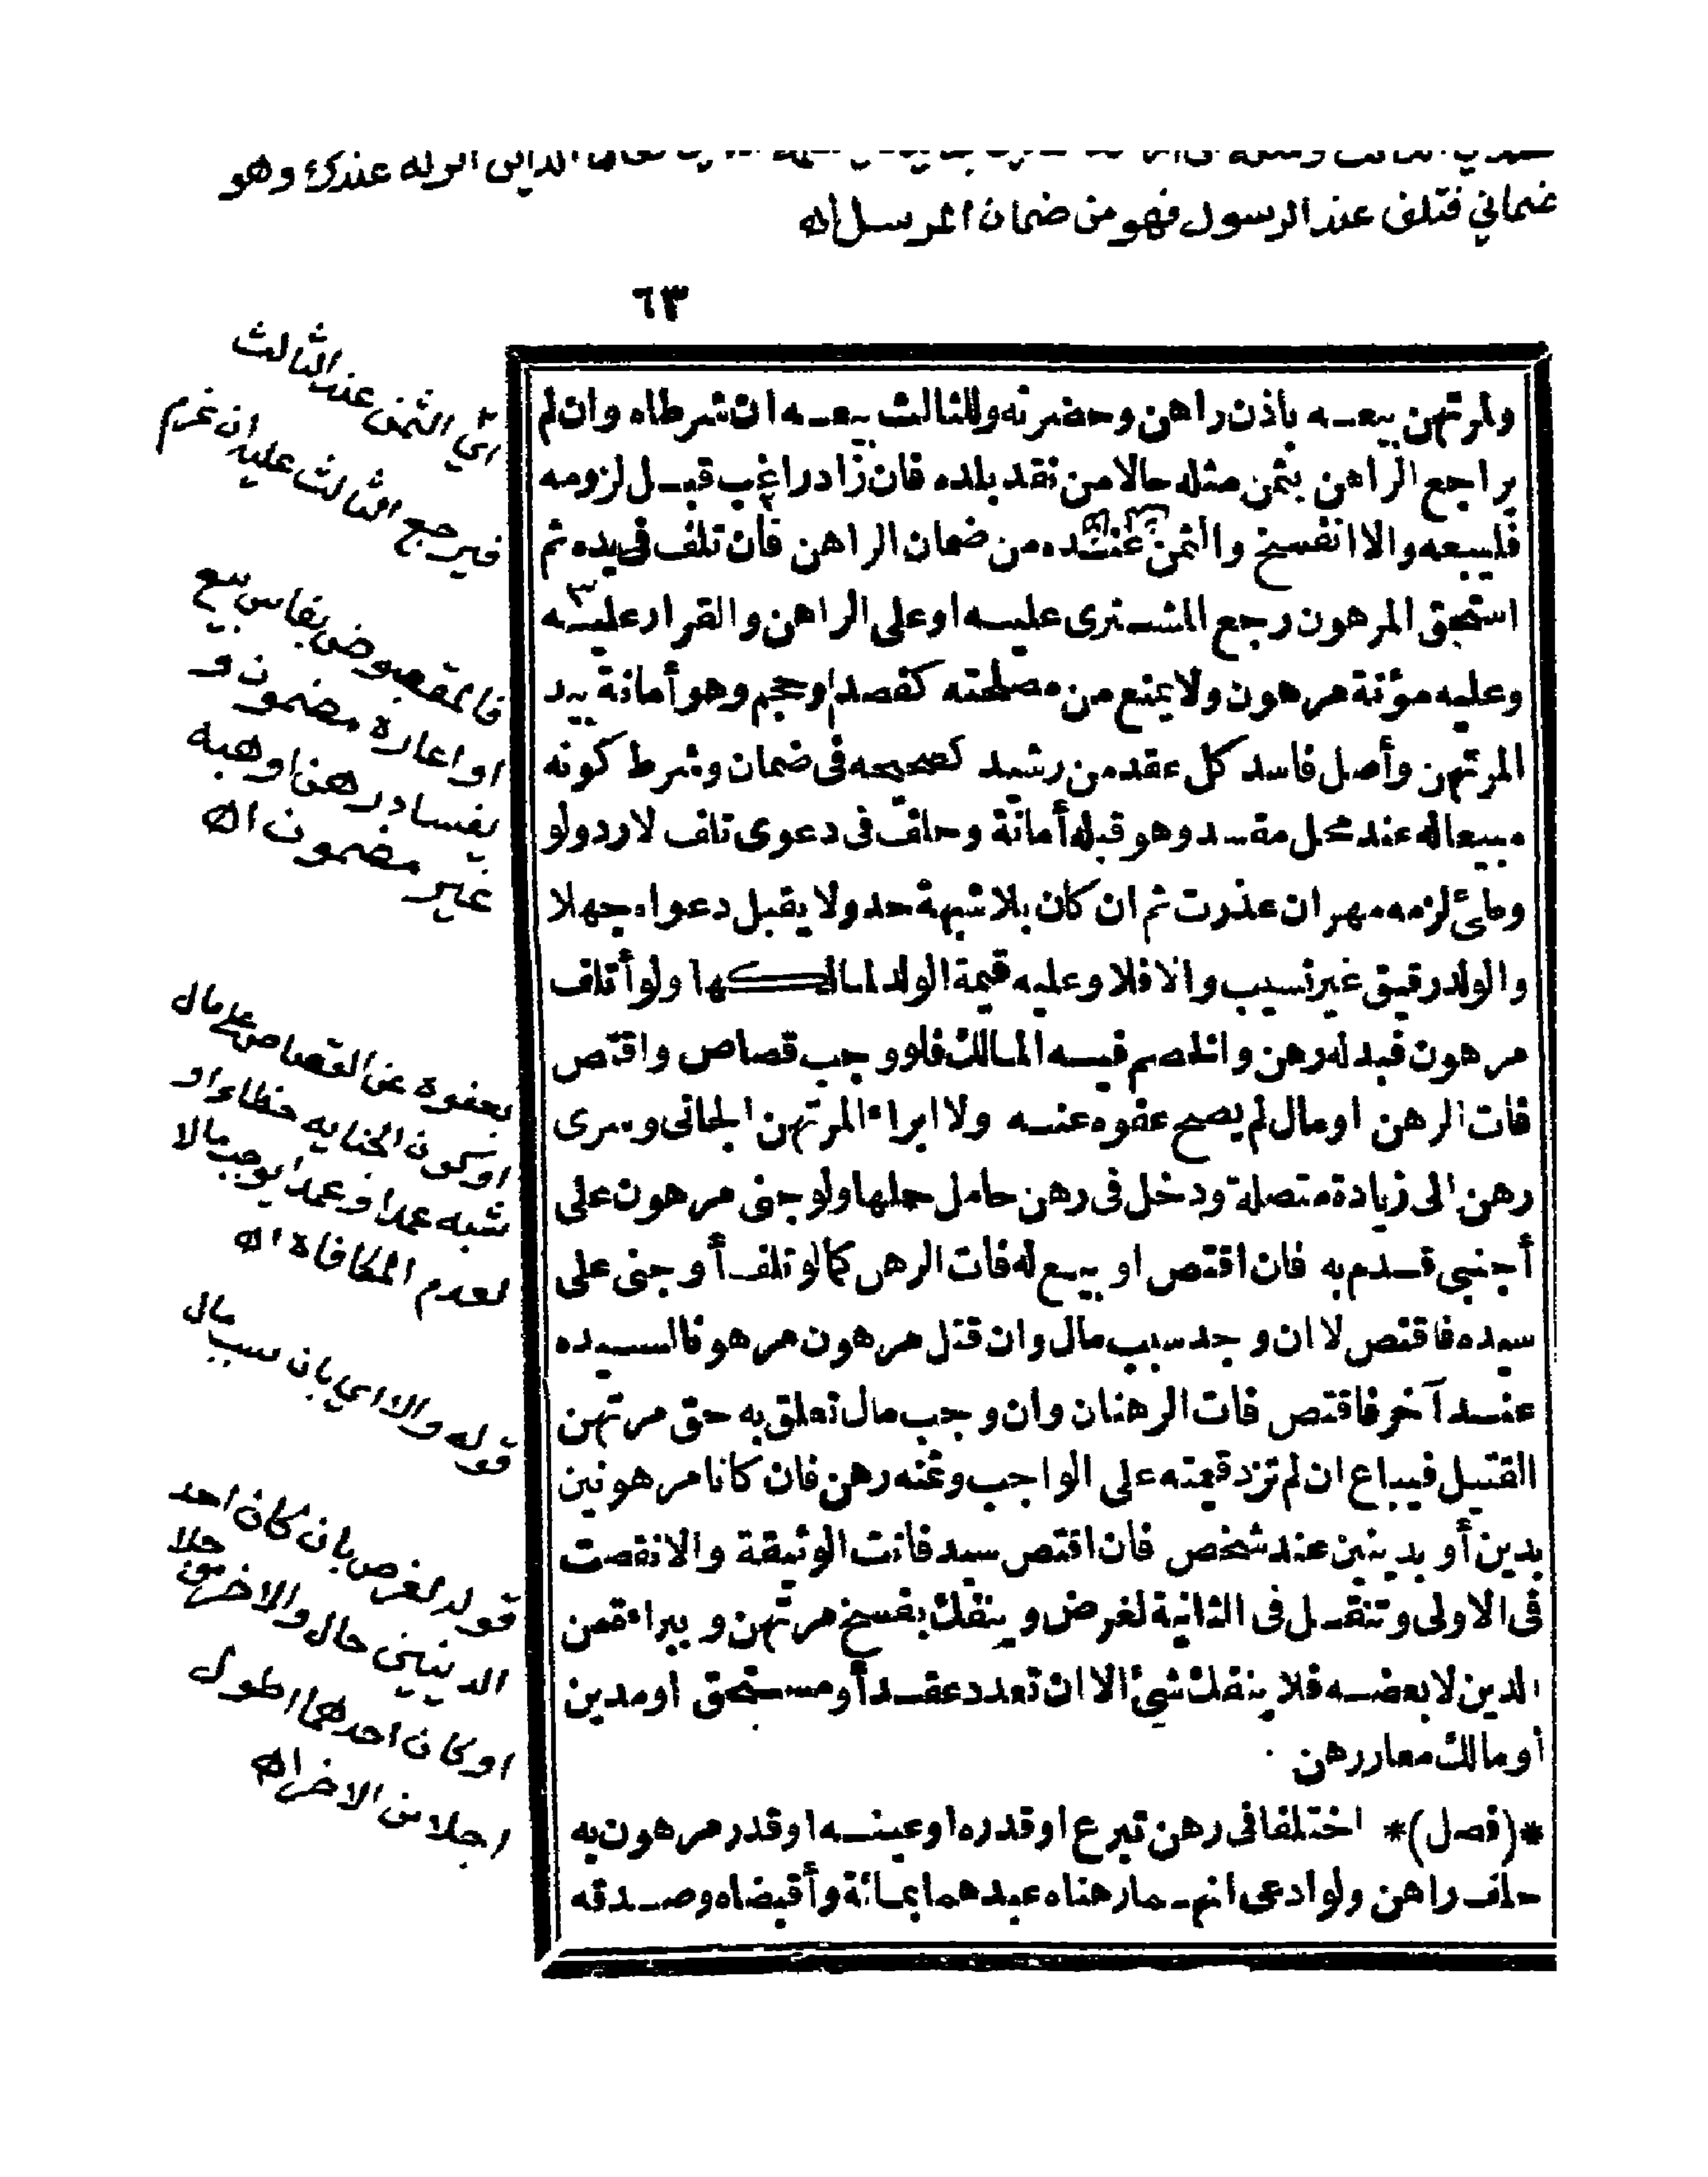 الراي انزله عندك وهو
ضماني فتلف عند الرسول فهو من ضمان المرسل اه
٦٣
ولمرتهن بيعه باذن راهن وحضرته وللثالث بيعه ان شرطاه وان لم
يراجع الراهن بثمن مثله حالا من نقد بلده فان زاد راغب قبل لزومه
فليبعه والا انفسخ والثمن عنده من ضمان الراهن فان تلف في يده ثم
استحق المرهون رجع المشترى عليه او على الراهن والقرار عليه
وعليه مؤنة مرهون ولا يمنع من مصلحته كفصد او حجم وهو أمانة بيد
المرتهن وأصل فاسد كل عقد من رشيد كصحيحه فى ضمان وشرط كونه
مبيعاله عند محل مفسد وهو قبله أمانة وحلف فى دعوى تلف لا رد ولو
وطئ لزمه مهر ان عذرت ثم ان كان بلا شبهة حد ولا يقبل دعواه جهلا
والولد رقيق غير نسيب والا فلا وعليه قيمة الولد لمالكها ولو أتلف
مرهون فبدله رهن والخصم فيه المالك فلو وجب قصاص واقتص
فات الرهن او مال لم يصح عفوه عنه ولا ابراء المرتهن الجانى ويسرى
رهن الى زيادة متصلة ودخل فى رهن حامل حملها ولو جنى مرهون على
أجنبى قدم به فان اقتص او بيع له فات الرهن كما لو تلف أو جنى على
سيده فاقتص لا ان وجد سبب مال وان قتل مرهون مرهونا لسيده
عند آخر فاقتص فات الرهنان وان وجب مال تعلق به حق مرتهن
القتيل فيباع ان لم تزد قيمته على الواجب وثمنه رهن فان كانا مرهونين
بدين أو بدينين عند شخص فان اقتص سيد فاتت الوثيقة والا نقصت
فى الاولى وتنقل فى الثانية لغرض وينفك بفسخ مرتهن وببراءة من
الدين لا بعضه فلا ينفك شئ الا ان تعدد عقد أو مستحق او مدين
أو مالك معار رهن
*(فصل)* اختلفا فى رهن تبرع او قدره او عينه او قدر مرهون به
حلف راهن ولو ادعى انهما رهناه عبدهما بمائة وأقبضاه وصدقه
اي الثمن عند الثالث
فيرجع الثالث عليه ان غرم
فالمقبوض بفاسد بيع
او اعارة مضمون و
بفساد رهن او هبة
غير مضمون اه
بعفوه عن القصاص على مال
او كون الجناية خطاء او
شبه عمدا و عمدا يوجب مالا
لعدم المكافاة اه
قوله والا اي بان سبب مال
قوله لغرض بان كان احد
الدينين حال والاخر
او كان احدهما اطول
اجلا من الاخر اه